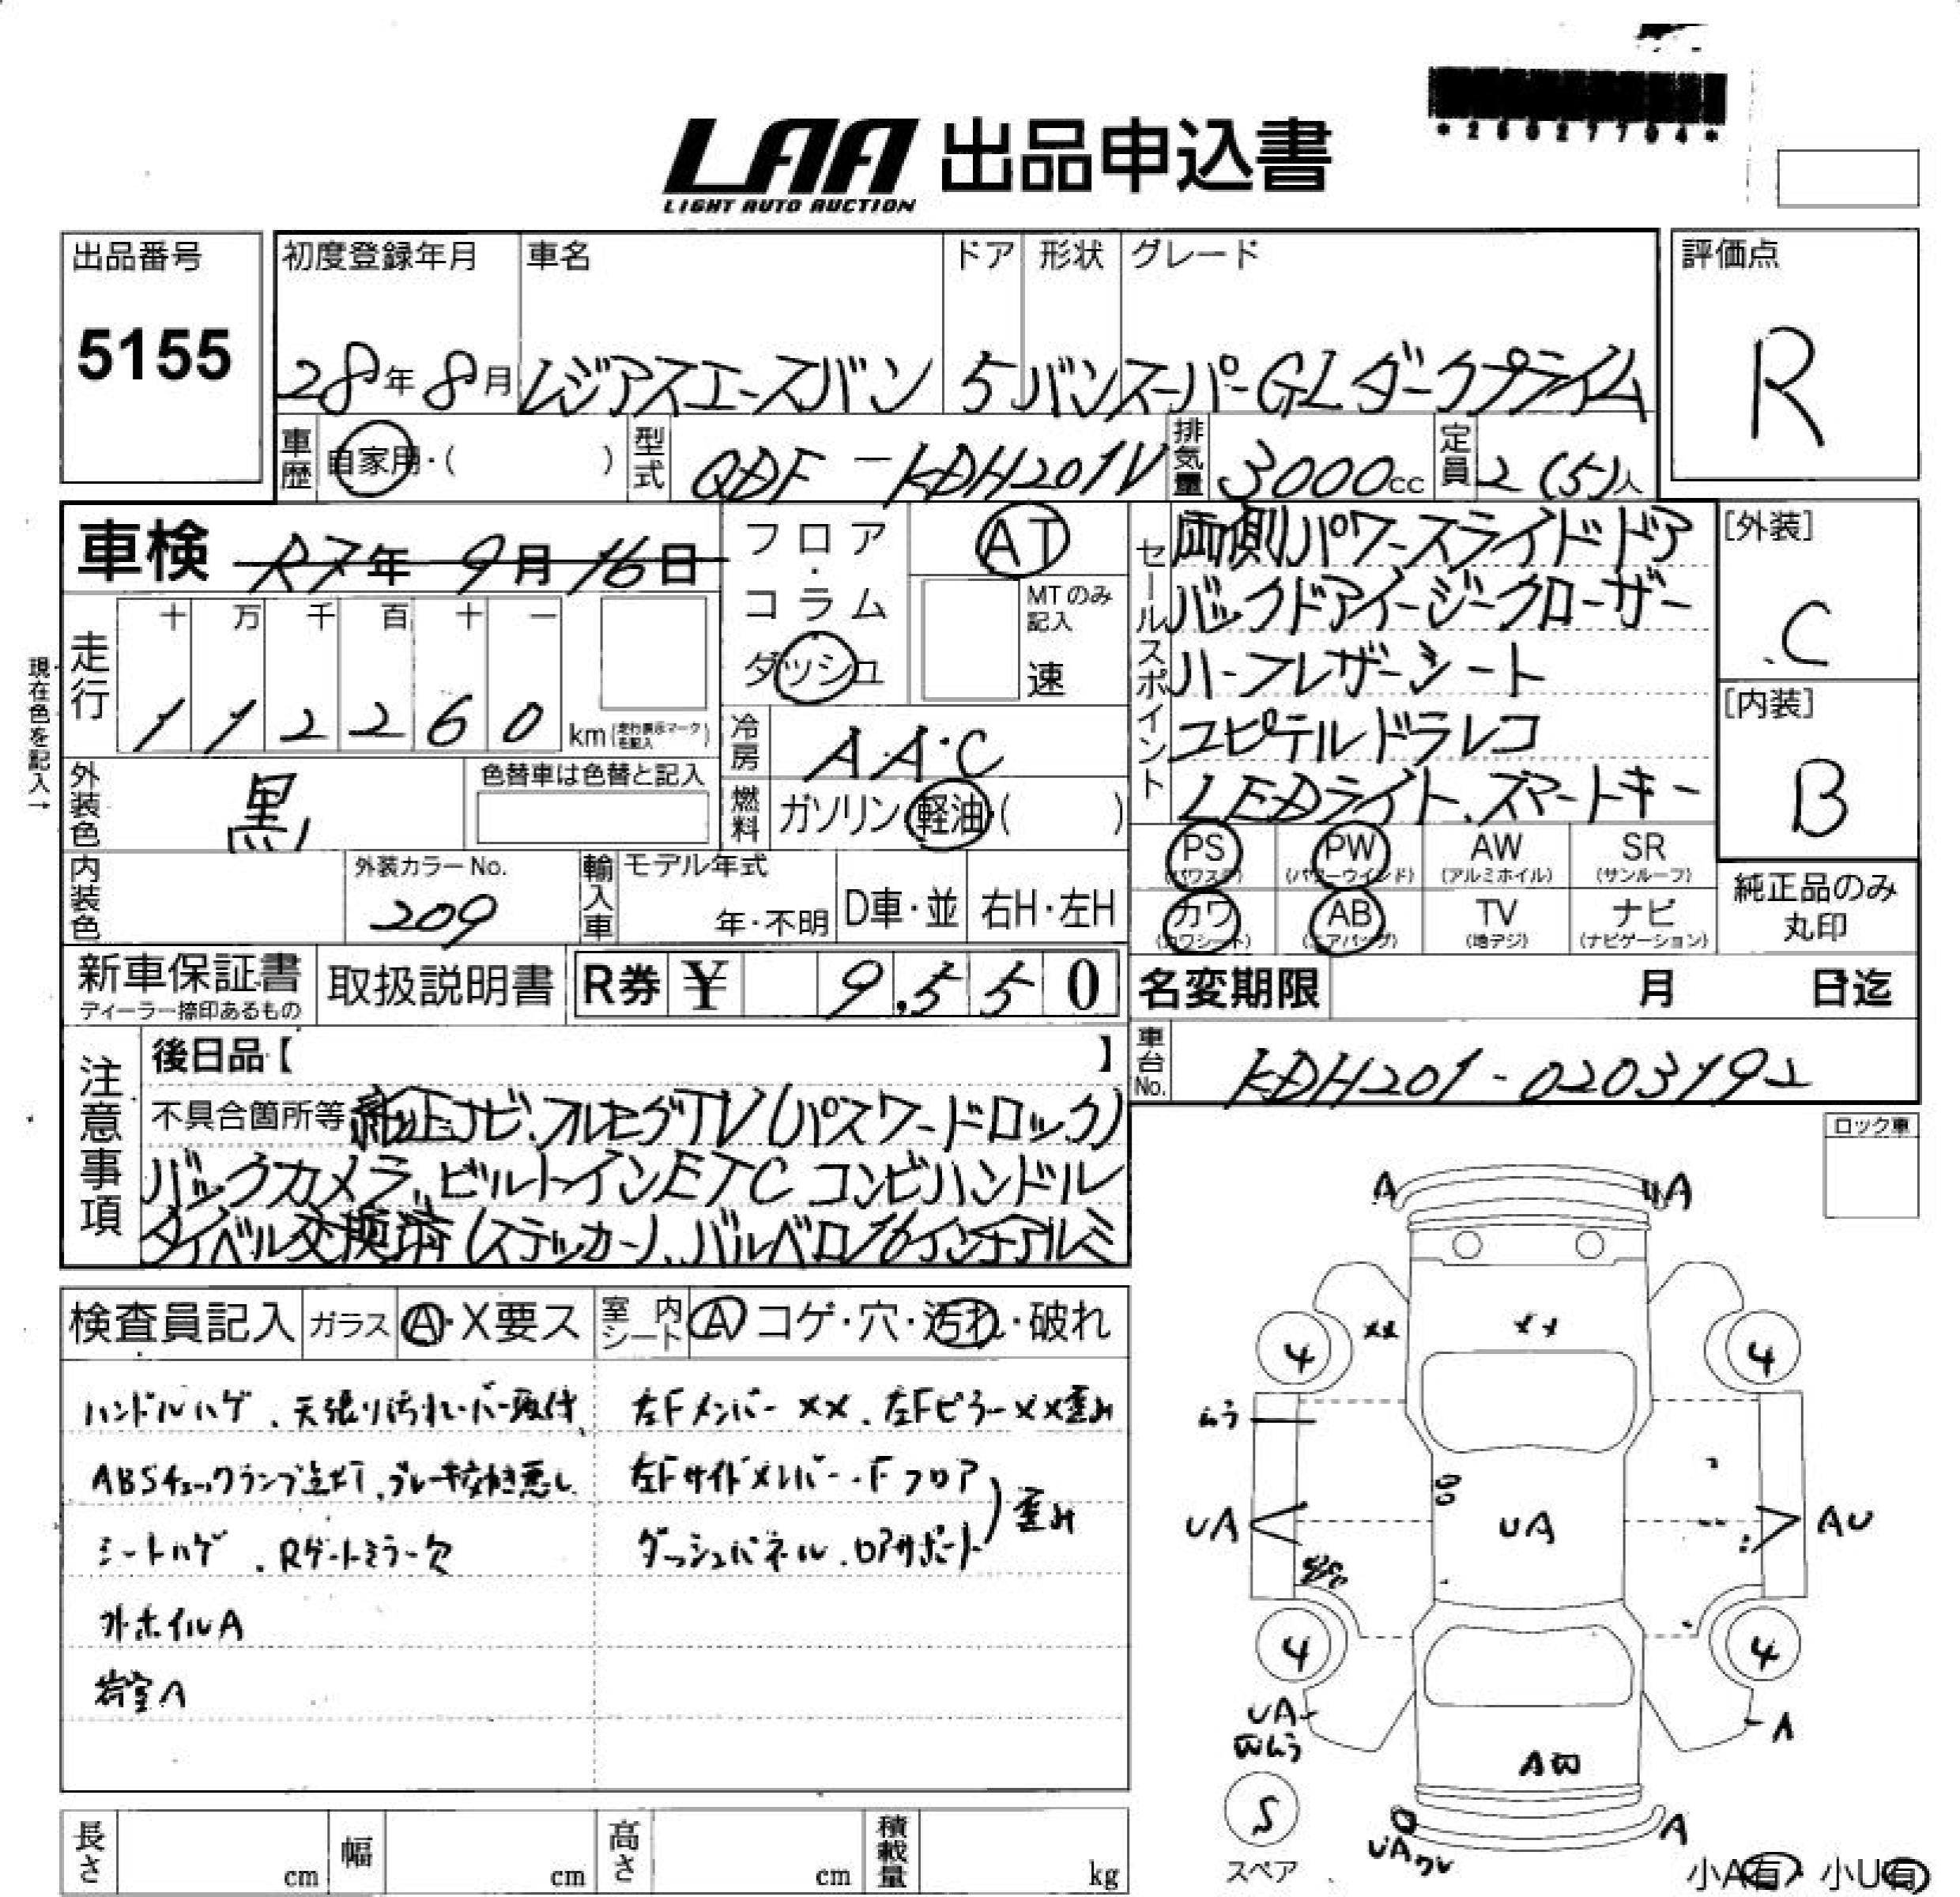 *26027704*
LAA 出品申込書
LIGHT AUTO AUCTION
出品番号
5155
初度登録年月 車名 ドア 形状 グレード
28年8月 レジアスエースバン 5 バン スーパーGLダークプライム
評価点
R
車歴 自家用・( ) 型式 QDF-KDH201V 排気量 3000cc 定員 2(5)人
車検 R7年9月16日
フロア・コラム
ダッシュ
AT
MTのみ記入
速
走行
十 万 千 百 十 一
112260 km(走行表示マークを記入)
現在色を記入→
冷房 AAC
燃料 ガソリン 軽油 ( )
外装色 黒
色替車は色替と記入
内装色
外装カラーNo.
209
輸入車 モデル年式
年・不明 D車・並 右H・左H
セールスポイント
両側パワースライドドア
バックドアイージークローザー
ハーフレザーシート
ユピテルドラレコ
LEDライト、スマートキー
[外装]
C
[内装]
B
PS (パワステ) PW (パワーウインド) AW (アルミホイル) SR (サンルーフ)
カワ (カワシート) AB (エアバッグ) TV (地デジ) ナビ (ナビゲーション)
純正品のみ
丸印
新車保証書
ディーラー捺印あるもの
取扱説明書 R券 ¥ 9,550
名変期限 月 日迄
車台No. KDH201-0203192
注意事項
後日品【 】
不具合箇所等 純正ナビ、フルセグTV(パスワードロック)
バックカメラ、ビルトインETC コンビハンドル
タイベル交換済(ステッカー)、バルベロ16インチアルミ
ロック車
検査員記入 ガラス A・X要ス 室内シート A コゲ・穴・汚れ・破れ
ハンドルハゲ、天張り汚れ・バー取付、
ABSチェックランプ点灯、ブレーキ効き悪し
シートハゲ、Rゲートミラー欠
外ホイルA
荷室A
左Fメンバー××、左Fピラー××歪み
左Fサイドメンバー・Fフロア
ダッシュパネル、ロアサポート
歪み
A
A
4
××
××
4
ムラ
UA
UA
AU
4
4
UA
凹ムラ
A
A凹
S
スペア
UAワレ
A
小A有・小U有
長さ cm 幅 cm 高さ cm 積載量 kg